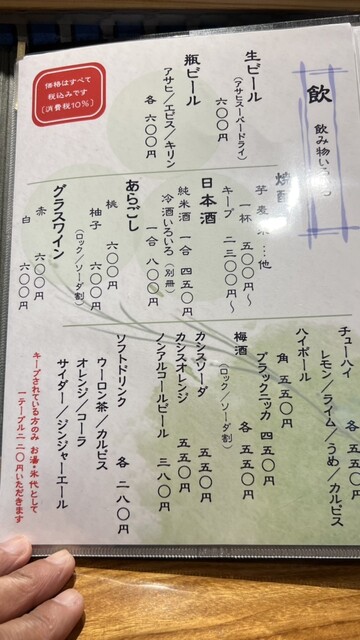 飲
飲み物いろいろ
生ビール
(アサヒスーパードライ)
六〇〇円
瓶ビール
アサヒ/エビス/キリン
各 六〇〇円
価格はすべて
税込みです
(消費税10%)
焼酎
芋 麦 米…他
一杯 五〇〇円〜
キープ 二三〇〇円〜
日本酒
純米酒 一合 四五〇円
冷酒いろいろ(別冊)
一合 八〇〇円
あらごし
桃 六〇〇円
柚子 六〇〇円
(ロック/ソーダ割)
グラスワイン
赤 六〇〇円
白 六〇〇円
チューハイ
レモン/ライム/うめ/カルピス
各 五五〇円
ハイボール
角 五五〇円
ブラックニッカ 四五〇円
梅酒
(ロック/ソーダ割)
各 五五〇円
カシスソーダ 五五〇円
カシスオレンジ 五五〇円
ノンアルコールビール 三八〇円
ソフトドリンク 各 二八〇円
ウーロン茶/カルピス
オレンジ/コーラ
サイダー/ジンジャーエール
キープされている方のみ お湯・氷代として
一テーブル二二〇円いただきます